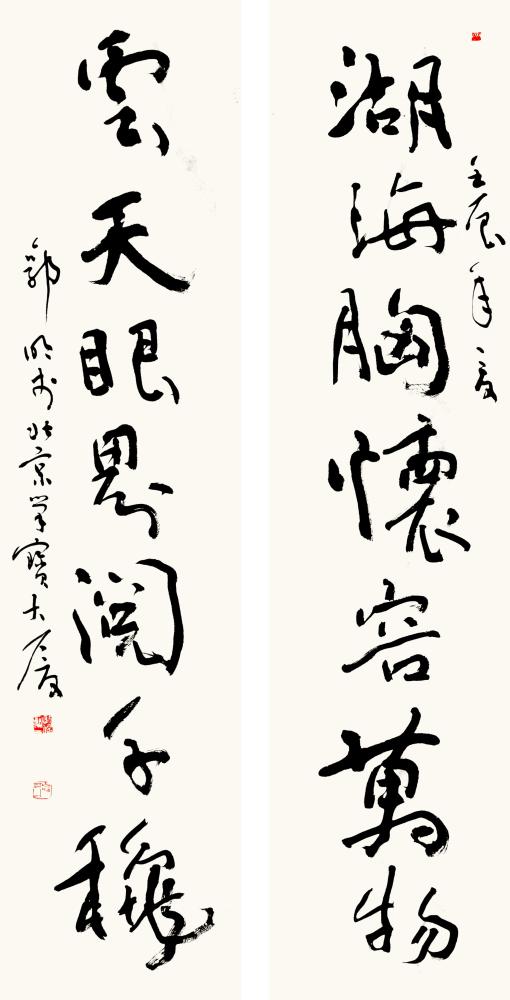 湖海胸懷容萬物
壬辰年夏
雲天眼界閱千穐
郭於北京榮寶大廈